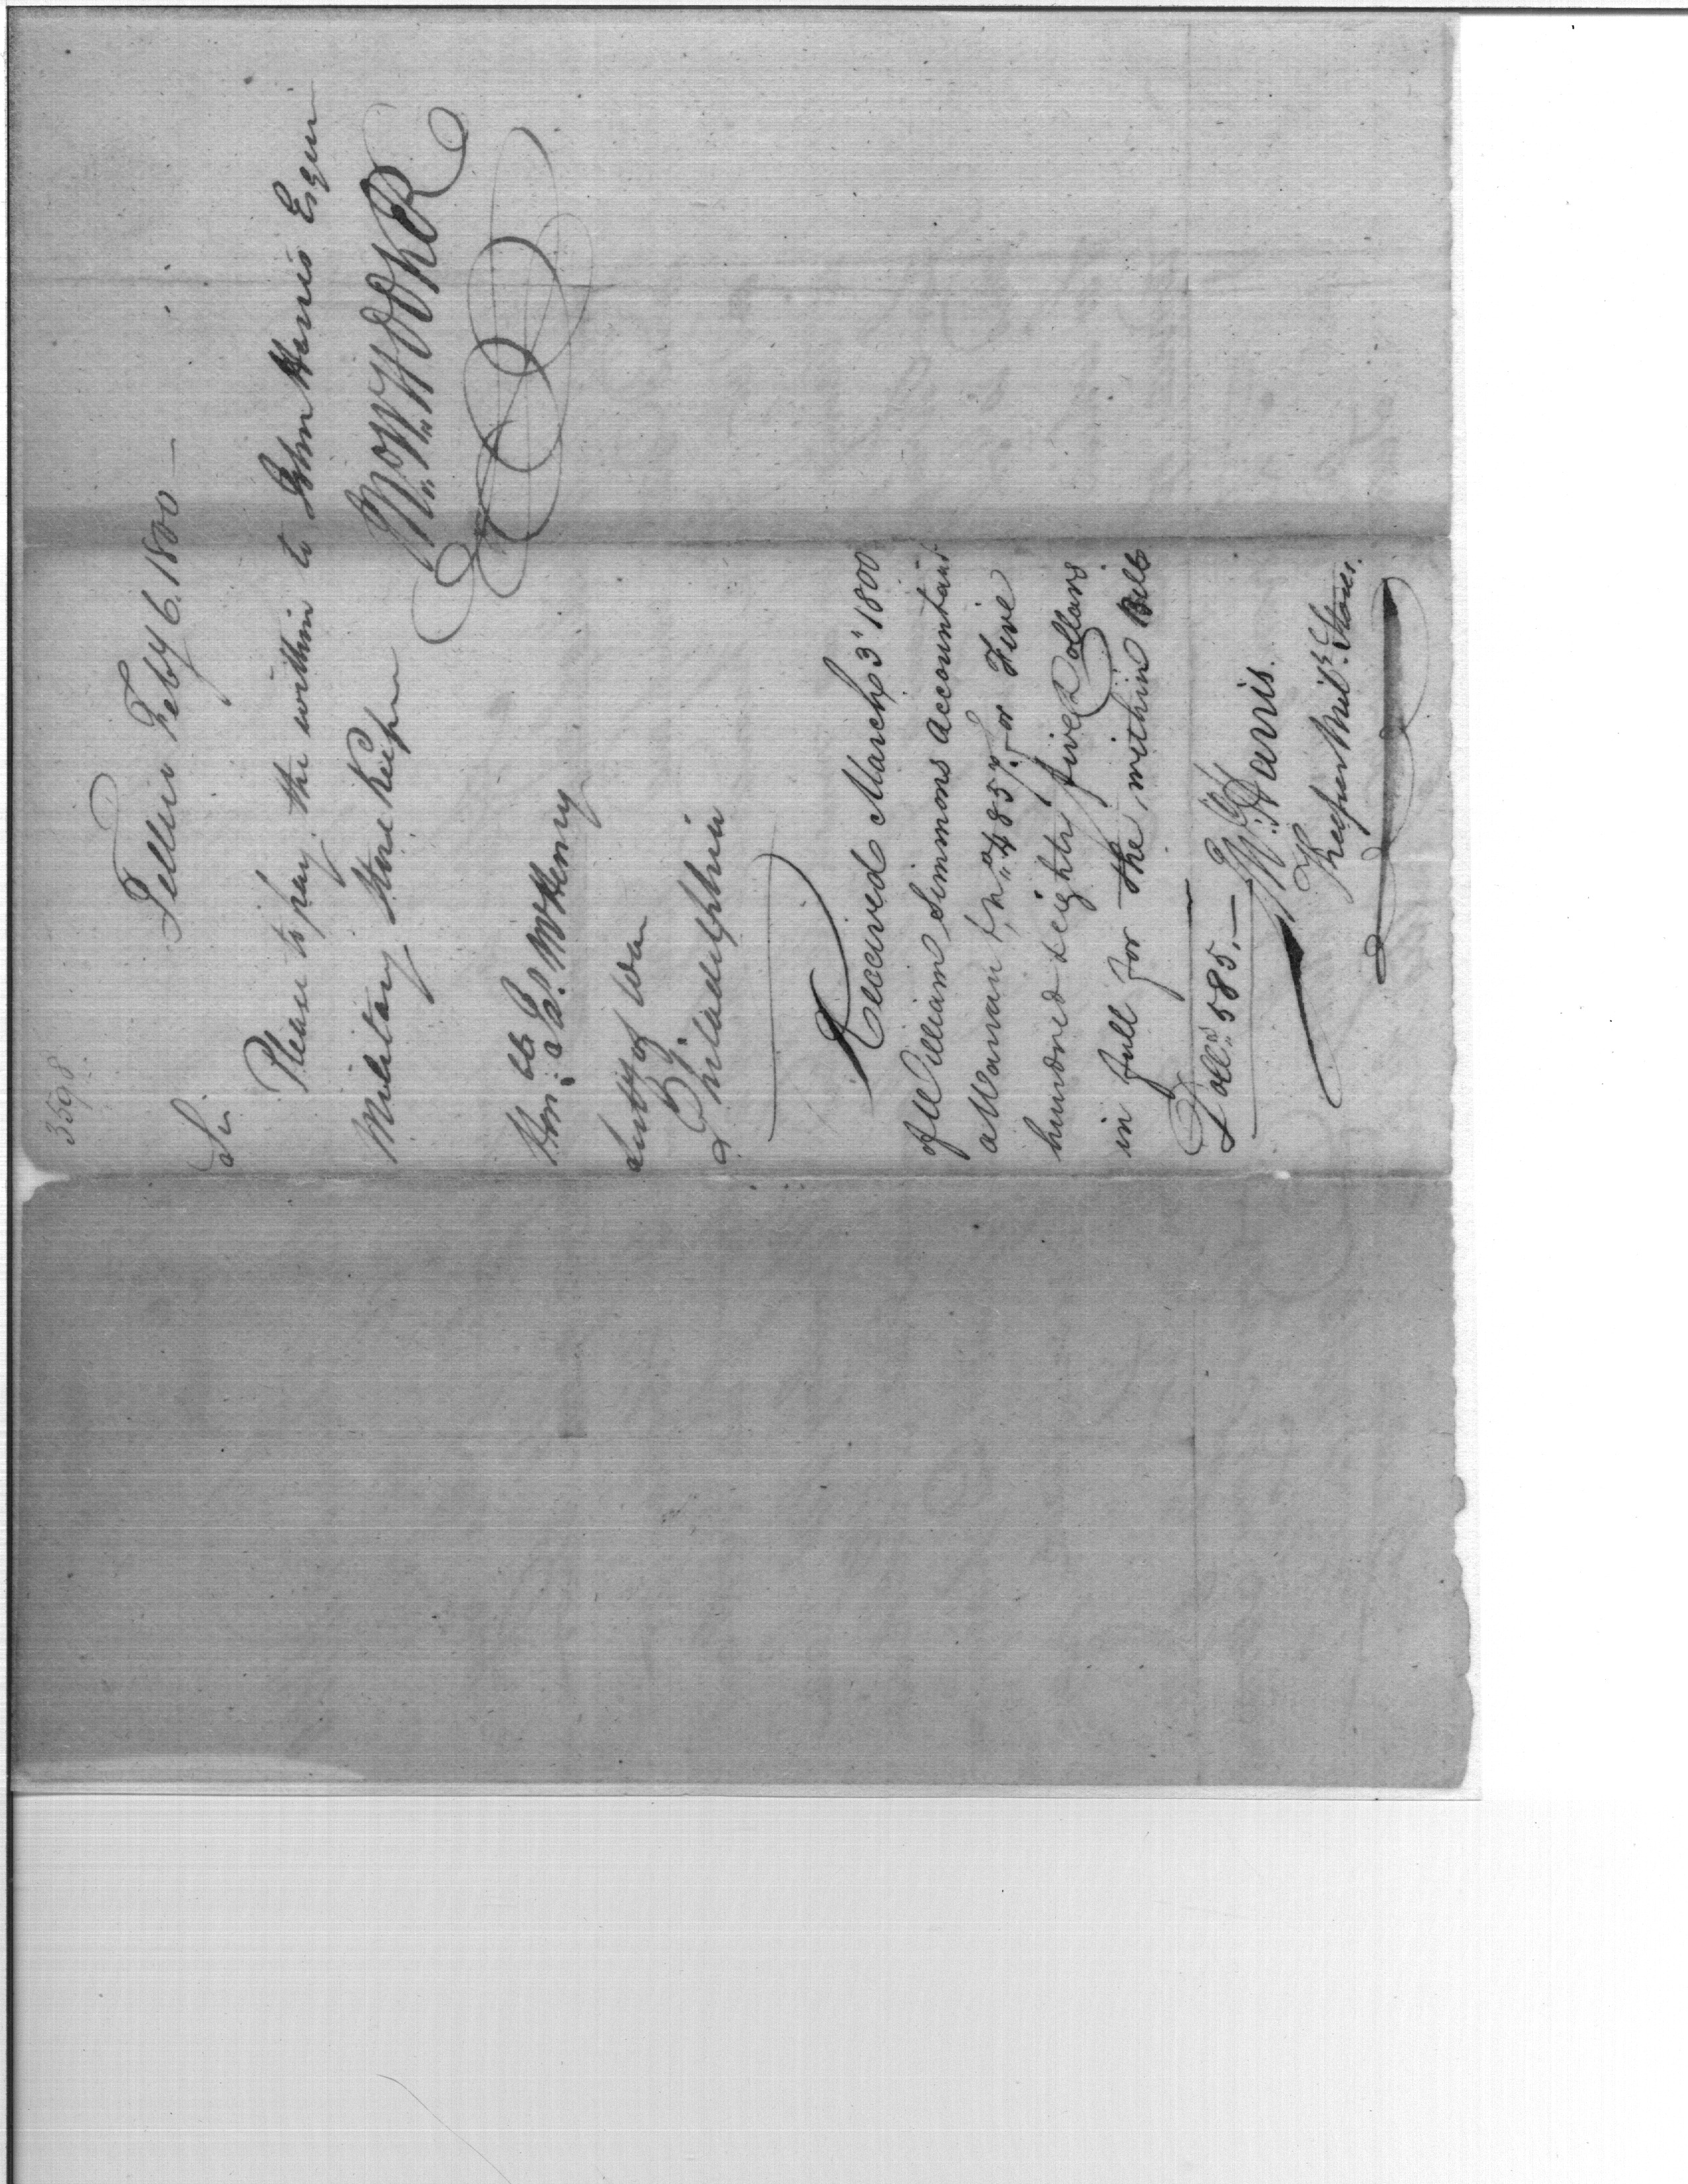 3598
Tellico Feby 6. 1800 —
Sir
Please to pay the within to John Harris Esqur
Military Store Keeper
Honble Jas. McHenry
Secty of War
Philadelphia
Received March 3d 1800
of William Simmons Accountant
a Warrant, No 4857. for Five
hundred & eighty five Dollars
in full for the within Bill
Dolls 585.—
Jn. Harris.
Keeper Mily. Stores.